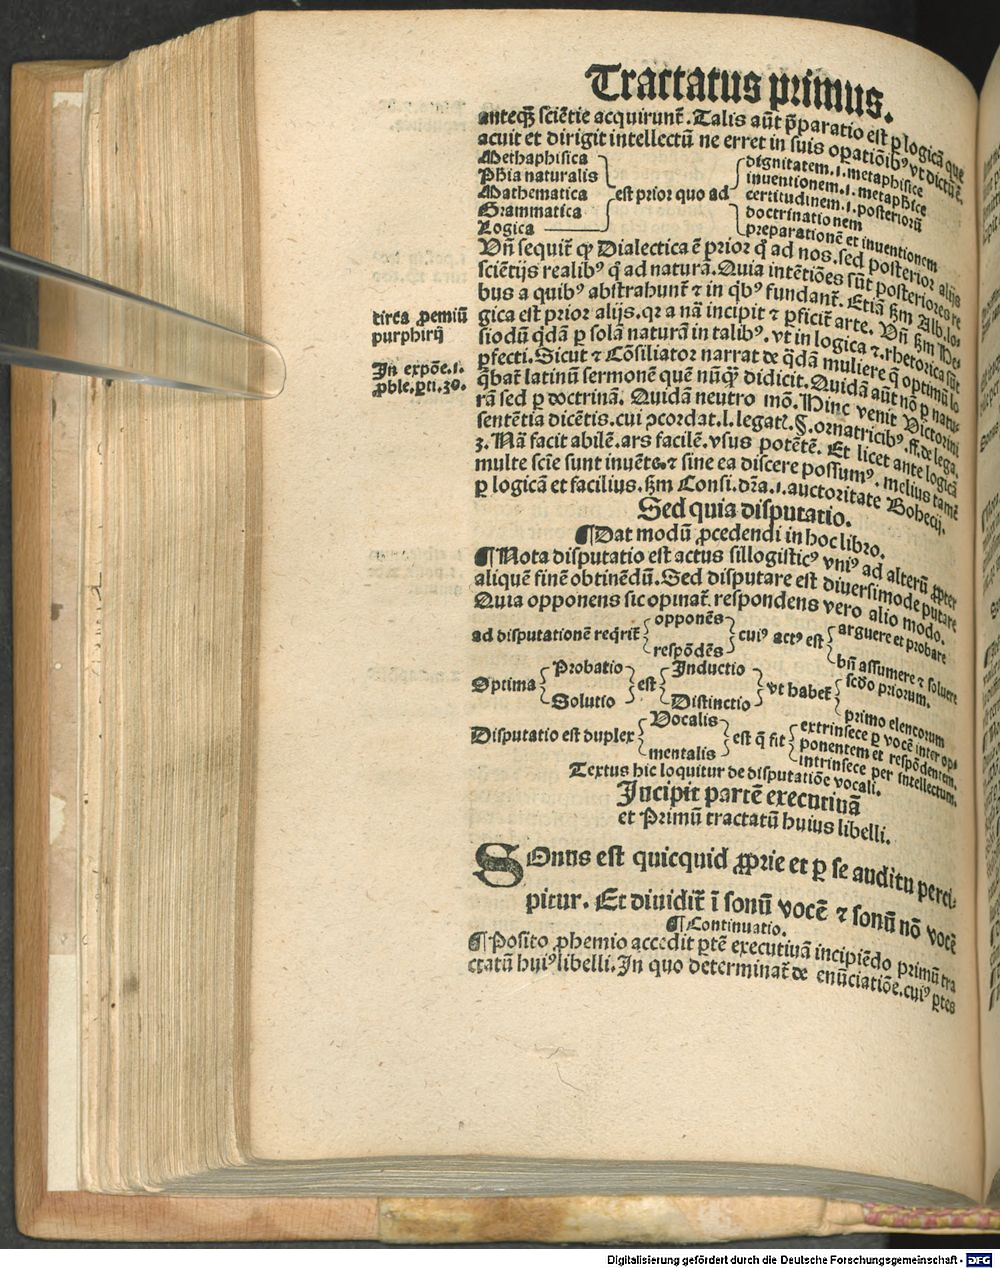 Tractatus primus.
anteq̄ꝫ sciētie acquirunt᷑. Talis aūt p̄paratio est ꝑ logicā que
acuit et dirigit intellectū ne erret in suis oꝑatiōibꝰ vt dictū ē.
Methaphisica
Phīa naturalis
Mathematica
Grammatica
Logica
est prior quo ad
dignitatem .i. metaphisice
inuentionem .i. metaphīce
certitudinem .i. posteriorū
doctrinationem
preparationē et inuentionem
Vn̄ sequit᷑ ꝙ Dialectica ē prior q̊ ad nos. sed posterior alijs
sciētijs realibꝰ q̊ ad naturā. Quia intētiōes sūt posteriores re
bus a quibꝰ abstrahunt᷑ ⁊ in q̄bꝰ fundant᷑. Etiā ẜm Alb. lo⸗
gica est prior alijs. qr a nā incipit ⁊ ꝑficit᷑ arte. Vn̄ ẜm He⸗
siodū q̄dā ꝑ solā naturā in talibꝰ. vt in logica ⁊ rhetorica sūt
ꝑfecti. Sicut ⁊ Cōsiliator narrat de q̄dā muliere q̄ optimū lo
q̄bat᷑ latinū sermonē quē nūq̄ꝫ didicit. Quidā aūt nō ꝑ natu⸗
rā sed ꝑ doctrinā. Quidā neutro mō. Hinc venit Victorini
sentētia dicētis. cui ꝯcordat. l. legat᷑. §. ornatricibꝰ. ff. de lega.
3. Nā facit abilē. ars facilē. vsus potētē. Et licet ante logicā
multe scīe sunt inuēte. ⁊ sine ea discere possumꝰ. melius tamē
ꝑ logicā et facilius. ẜm Consi. dr̄a. 1. auctoritate Bohecij.
circa ꝓemiū
purphirij
In expōe. 1.
ꝓble. ꝑti. 30.
Sed quia disputatio.
¶ Dat modū ꝓcedendi in hoc libro.
¶ Nota disputatio est actus sillogisticꝰ vniꝰ ad alterū ꝓpter
aliquē finē obtinēdū. Sed disputare est diuersimode putare
Quia opponens sic opinat᷑. respondens vero alio modo.
ad disputationē req̄rit᷑
opponēs
respōdēs
cuiꝰ actꝰ est
arguere et probare
bn̄ assumere ⁊ soluere
Optima
Probatio
Solutio
est
Inductio
Distinctio
vt habet᷑
scd̄o priorum.
primo elencorum
Disputatio est duplex
Vocalis
mentalis
est q̄ fit
extrinsece ꝑ vocē inter op⸗
ponentem et respōdentem.
intrinsece per intellectum.
Textus hic loquitur de disputatiōe vocali.
Incipit partē executiuā
et Primū tractatū huius libelli.
SOnus est quicquid ꝓprie et ꝑ se auditu perci⸗
pitur. Et diuidit᷑ ī sonū vocē ⁊ sonū nō vocē
¶ Continuatio.
¶ Posito ꝓhemio accedit ꝑtē executiuā incipiēdo primū tra
ctatū huiꝰ libelli. In quo determinat᷑ de enūciatiōe. cuiꝰ ꝑtes
Digitalisierung gefördert durch die Deutsche Forschungsgemeinschaft - DFG